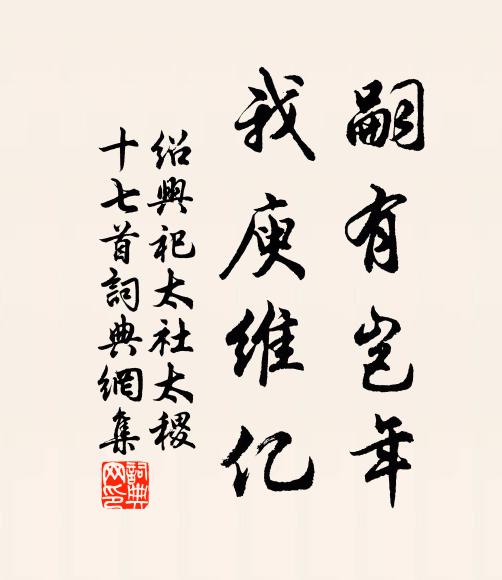 嗣有岂年
我庾維亿
紹興祀太社太稷
十七首詞典網集
詞典
网印